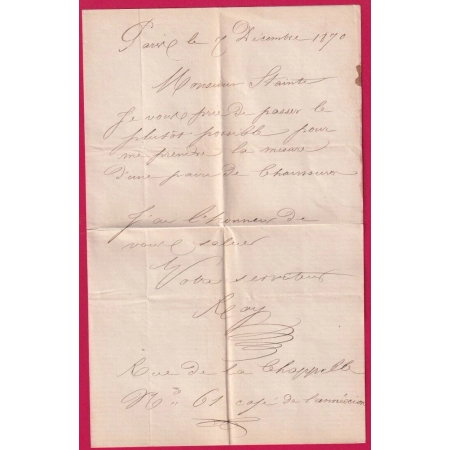 Paris le 7 Décembre 1870
Monsieur Stainte
Je vous prie de passer le
plutôt possible pour
me prendre la mesure
d'une paire de Chaussure
J'ai l'honneur de
vous saluer
Votre serviteur
Roy
Rue de la Chappelle
No 61 café de